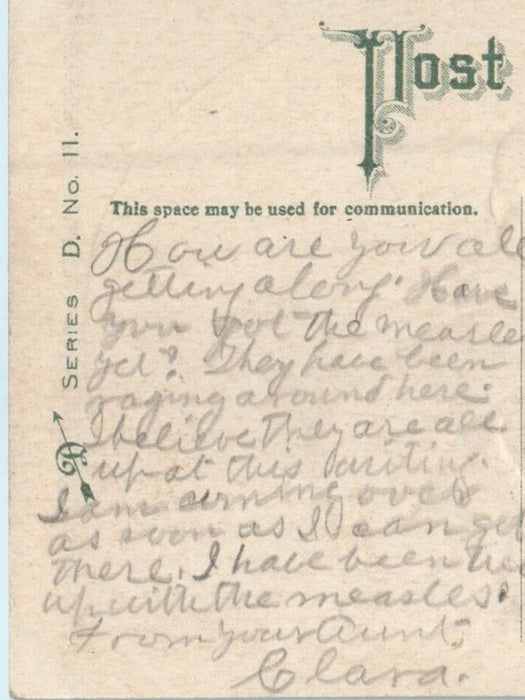 Post
This space may be used for communication.
SERIES D. No. 11.
How are you all
getting along. Have
you got the measle
yet? They have been
raging around here.
I believe they are all
up at this writing.
I am coming over
as soon as I can get
there. I have been
up with the measles.
From your Aunt,
Clara.